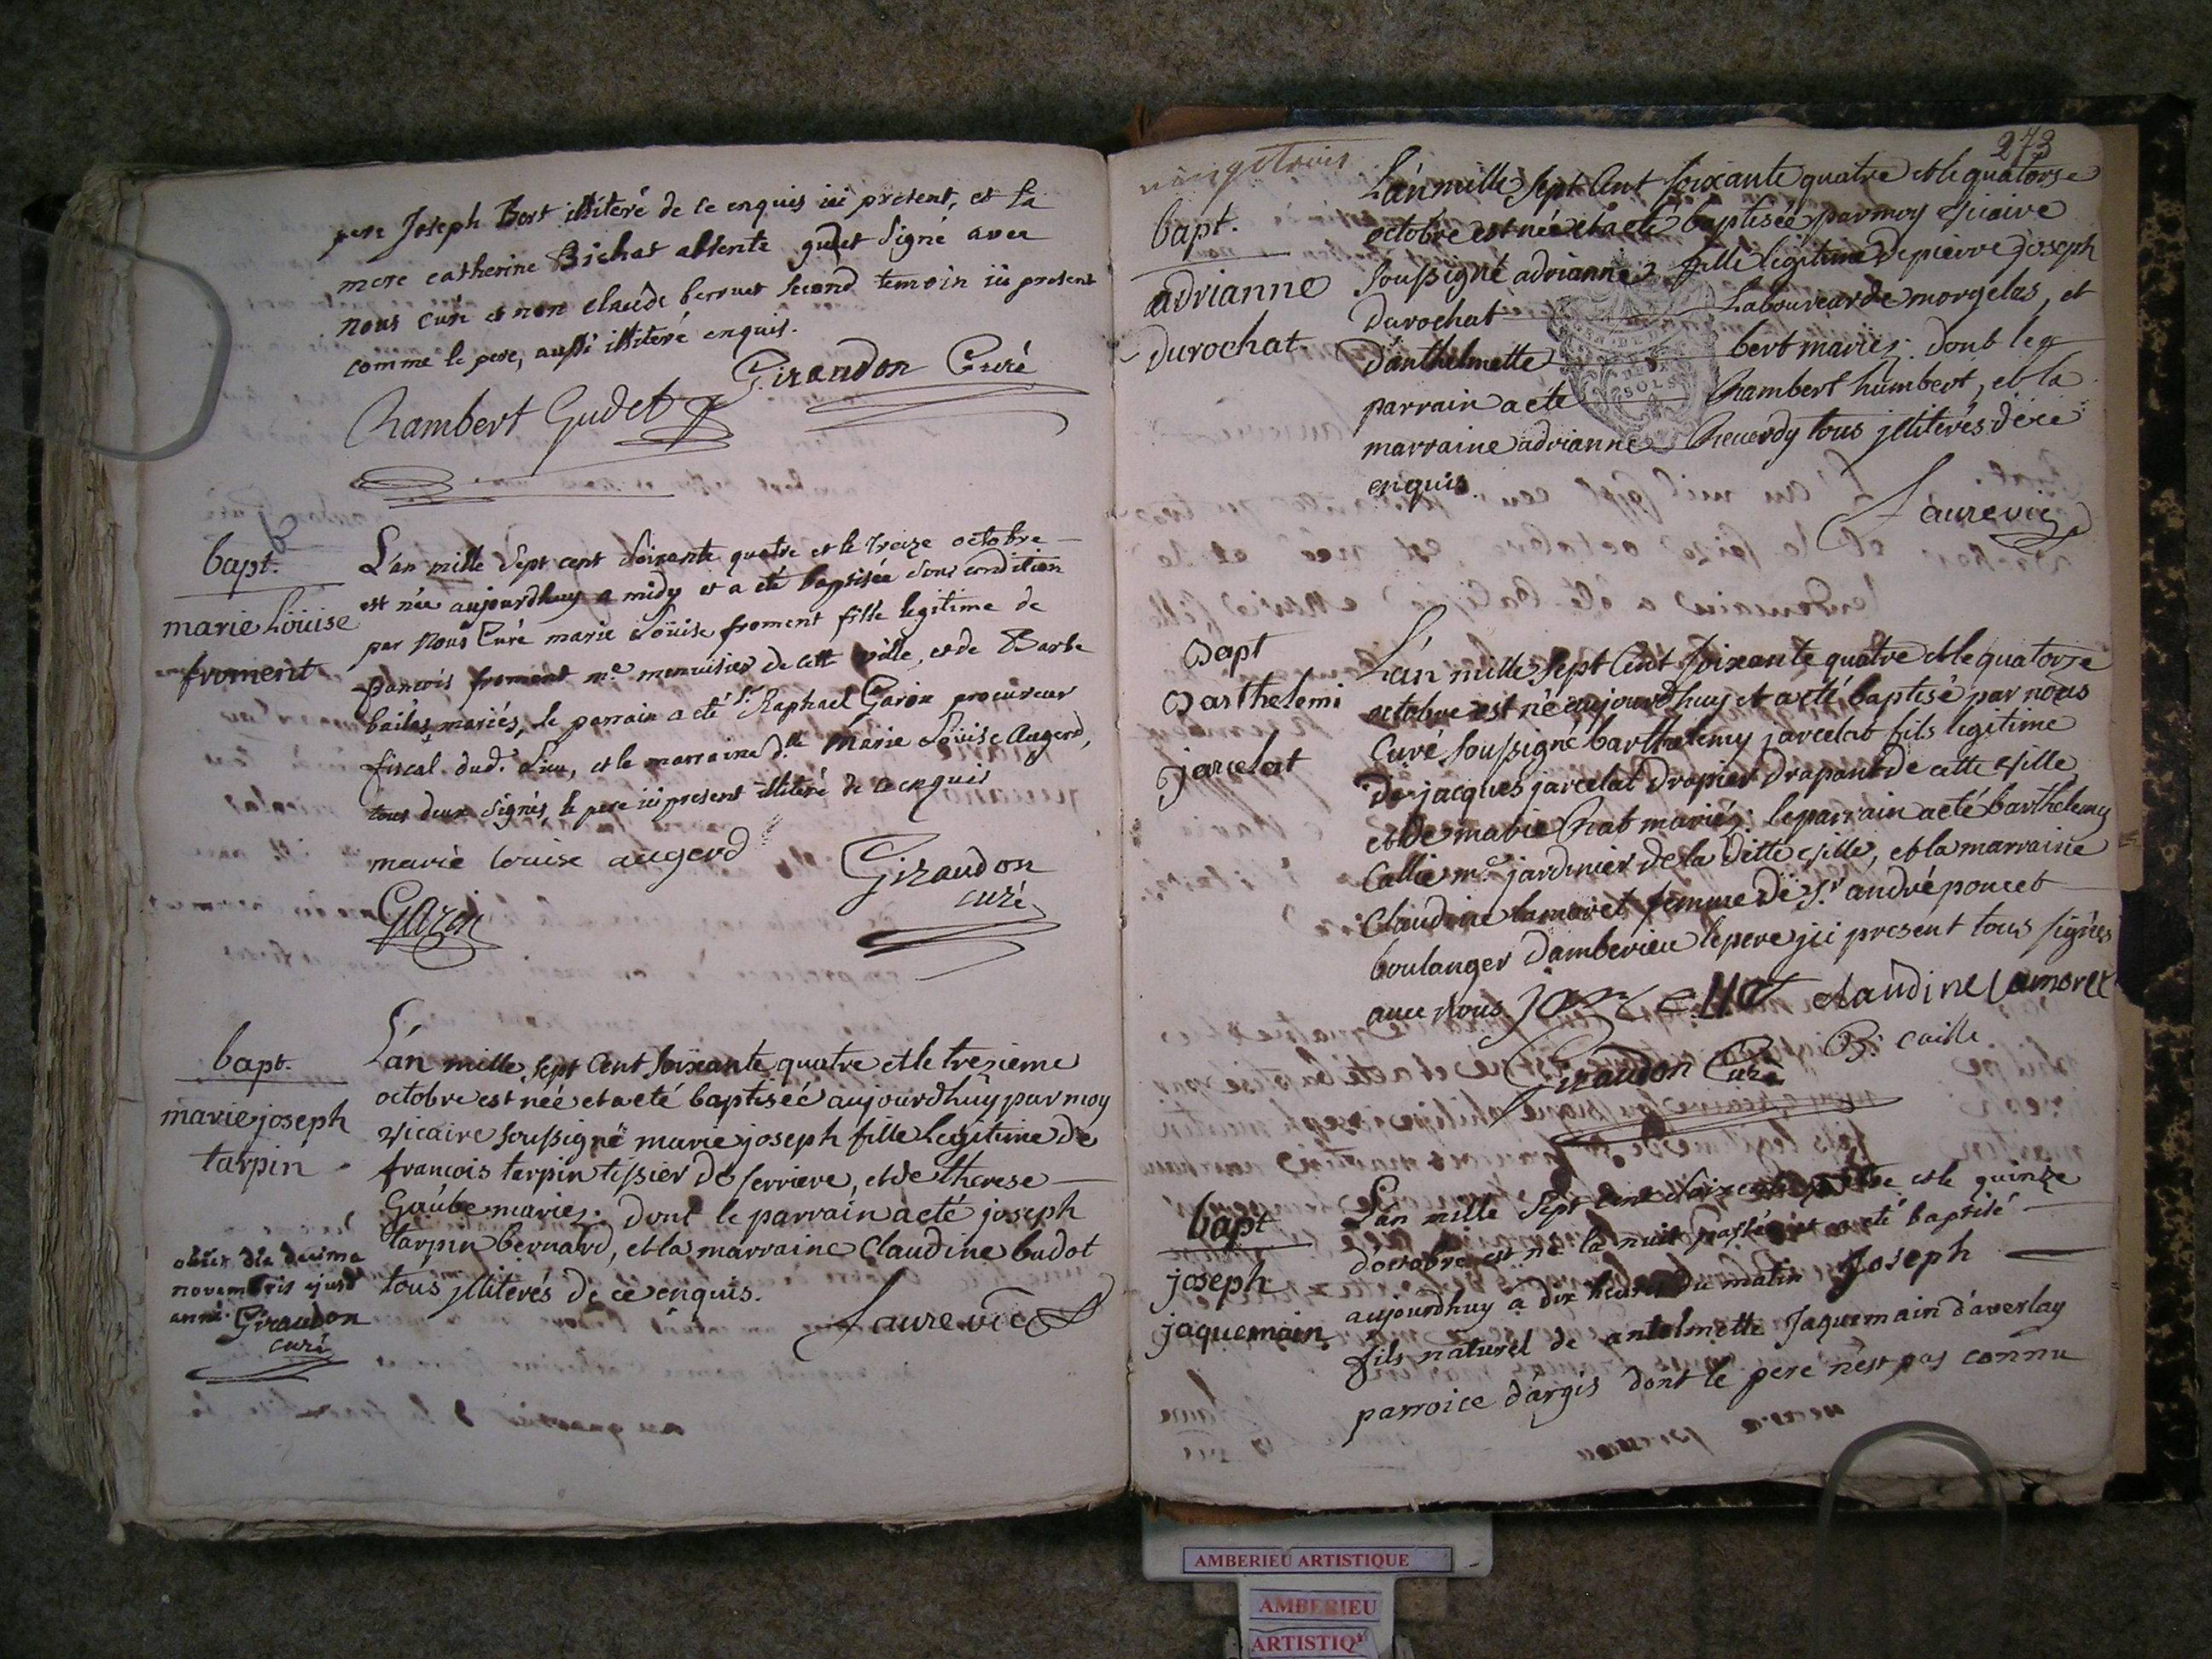 pere Joseph Bort illiteré de ce enquis ici present, et la
mere catherine Bichat absente gudet signé avec
nous curé et non claude berruet second temoin ici present
comme le pere, aussi illiteré enquis.
Girandon Curé
Rambert Gudet
bapt.
marie Loüise
froment
L'an mille sept cent soixante quatre et le treize octobre
est née aujourdhuy a midy et a eté baptisée sous condition
par nous Curé marie Loüise froment fille legitime de
francois froment me. menuisier de cette ville, et de Barbe
bailas mariés, le parrain a eté Sr. Raphael Garin procureur
fiscal dud. lieu, et la marraine dlle marie Loüise Augerd,
tous deux signés, le pere ici present illiteré de ce enquis
marie louise augerd
Girandon
curé
Garin
bapt.
marie joseph
tarpin
L'an mille sept Cent soixante quatre et le trezieme
octobre est née et a eté baptiseé aujourdhuy par moy
vicaire soussigné marie joseph fille Legitime de
francois tarpin tissier de serriere, et de therese
Gaübe mariez. dont le parrain a eté joseph
tarpin bernard, et la marraine Claudine budot
tous jlliterés de ce enquis.
faure vic
obiit die decima
novembris ejusd
anni. Girandon
curé
273
vingt trois
bapt.
adrianne
durochat
L'an mille sept Cent soixante quatre et le quatorse
octobre est née et a eté baptisée par moy vicaire
soussigné adrianne fille légitime de pierre joseph
durochat Laboureur de morgelas, et
d'anthelmette bert mariez. dont le
parrain a eté Rambert humbert, et la
marraine adrianne Reverdy tous jlliterés de ce
enquis.
faure vic
Bapt
Barthelemi
jarcelat
L'an mille sept Cent soixante quatre et le quatorze
octobre est né aujourdhuy et a eté baptisé par nous
Curé soussigné barthelemy jarcelat fils legitime
de jacques jarcelat drapier drapant de cette ville
et de marie Chat mariéz. le parrain a eté barthelemy
Callie me. jardinier de la ditte ville, et la marraine
Claudine lamoret femme de Sr. andré poncet
boulanger damberieu le pere jci present tous signés
avec nous. claudine lamoret
B. caille
Girandon Curé
bapt
joseph
jaquemain
L'an mille sept cent soixante quatre et le quinze
d'octobre est né la nuit passée et a eté baptisé
aujourdhuy a dix heures du matin Joseph
fils naturel de antelmette Jaquemain d'averlay
parroice d'argis dont le pere n'est pas connu
AMBERIEU ARTISTIQUE
AMBERIEU
ARTISTIQ